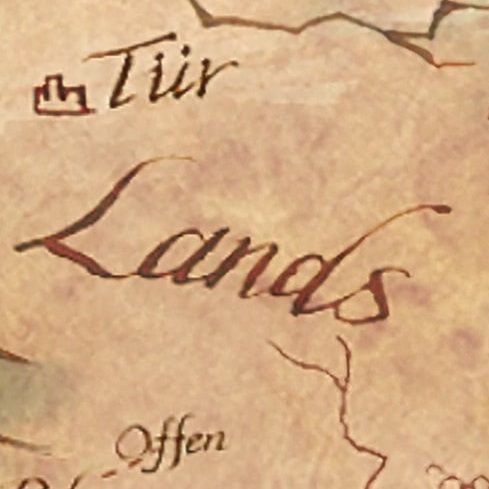 Tür
Lands
Offen